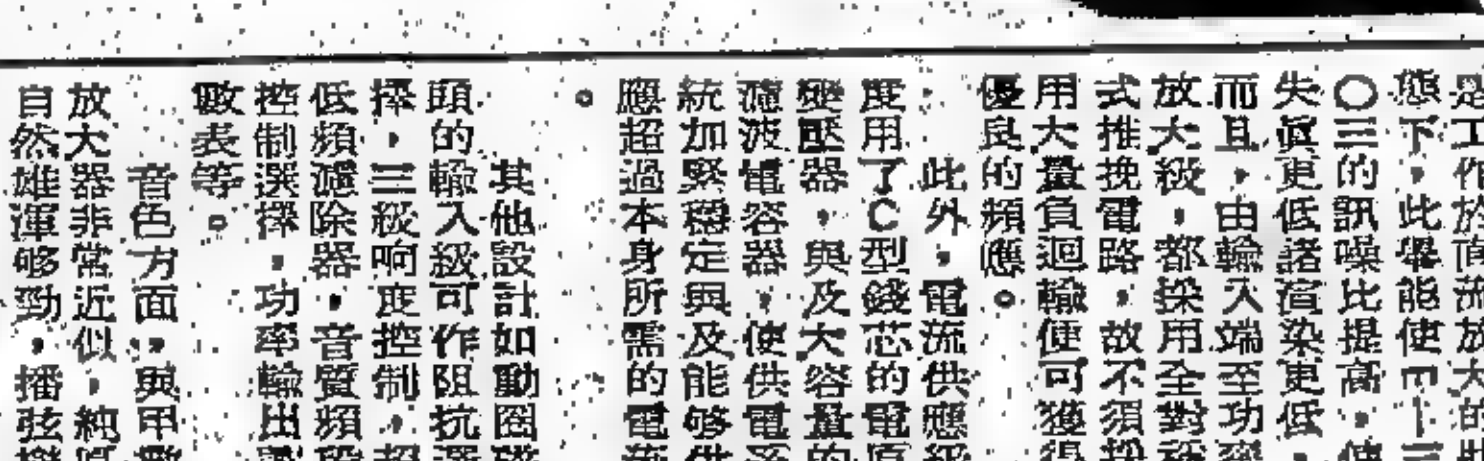 是工作於甲類放大的狀
態下，此舉能使E－三
〇三的訊噪比提高，使
失眞更低諧渲染更低，
而且，由輸入端至功率
放大級，都採用全對稱
式推挽電路，故不須採
用大量負迴輸便可獲得
優良的頻應。
此外，電流供應級
度用了C型錢芯的電原
變壓器，與及大容量的
濾波電容器，使供電系
統加緊穩定與及能够供
應超過本身所需的電流
。
其他設計如動圈磁
頭的輸入級可作阻抗選
擇，三級响度控制，超
低頻濾除器，音質頻段
控制選擇，功率輸出
啟表等。
音色方面，與甲類
放大器非常近似，純
自然雄渾够勁，播弦樂